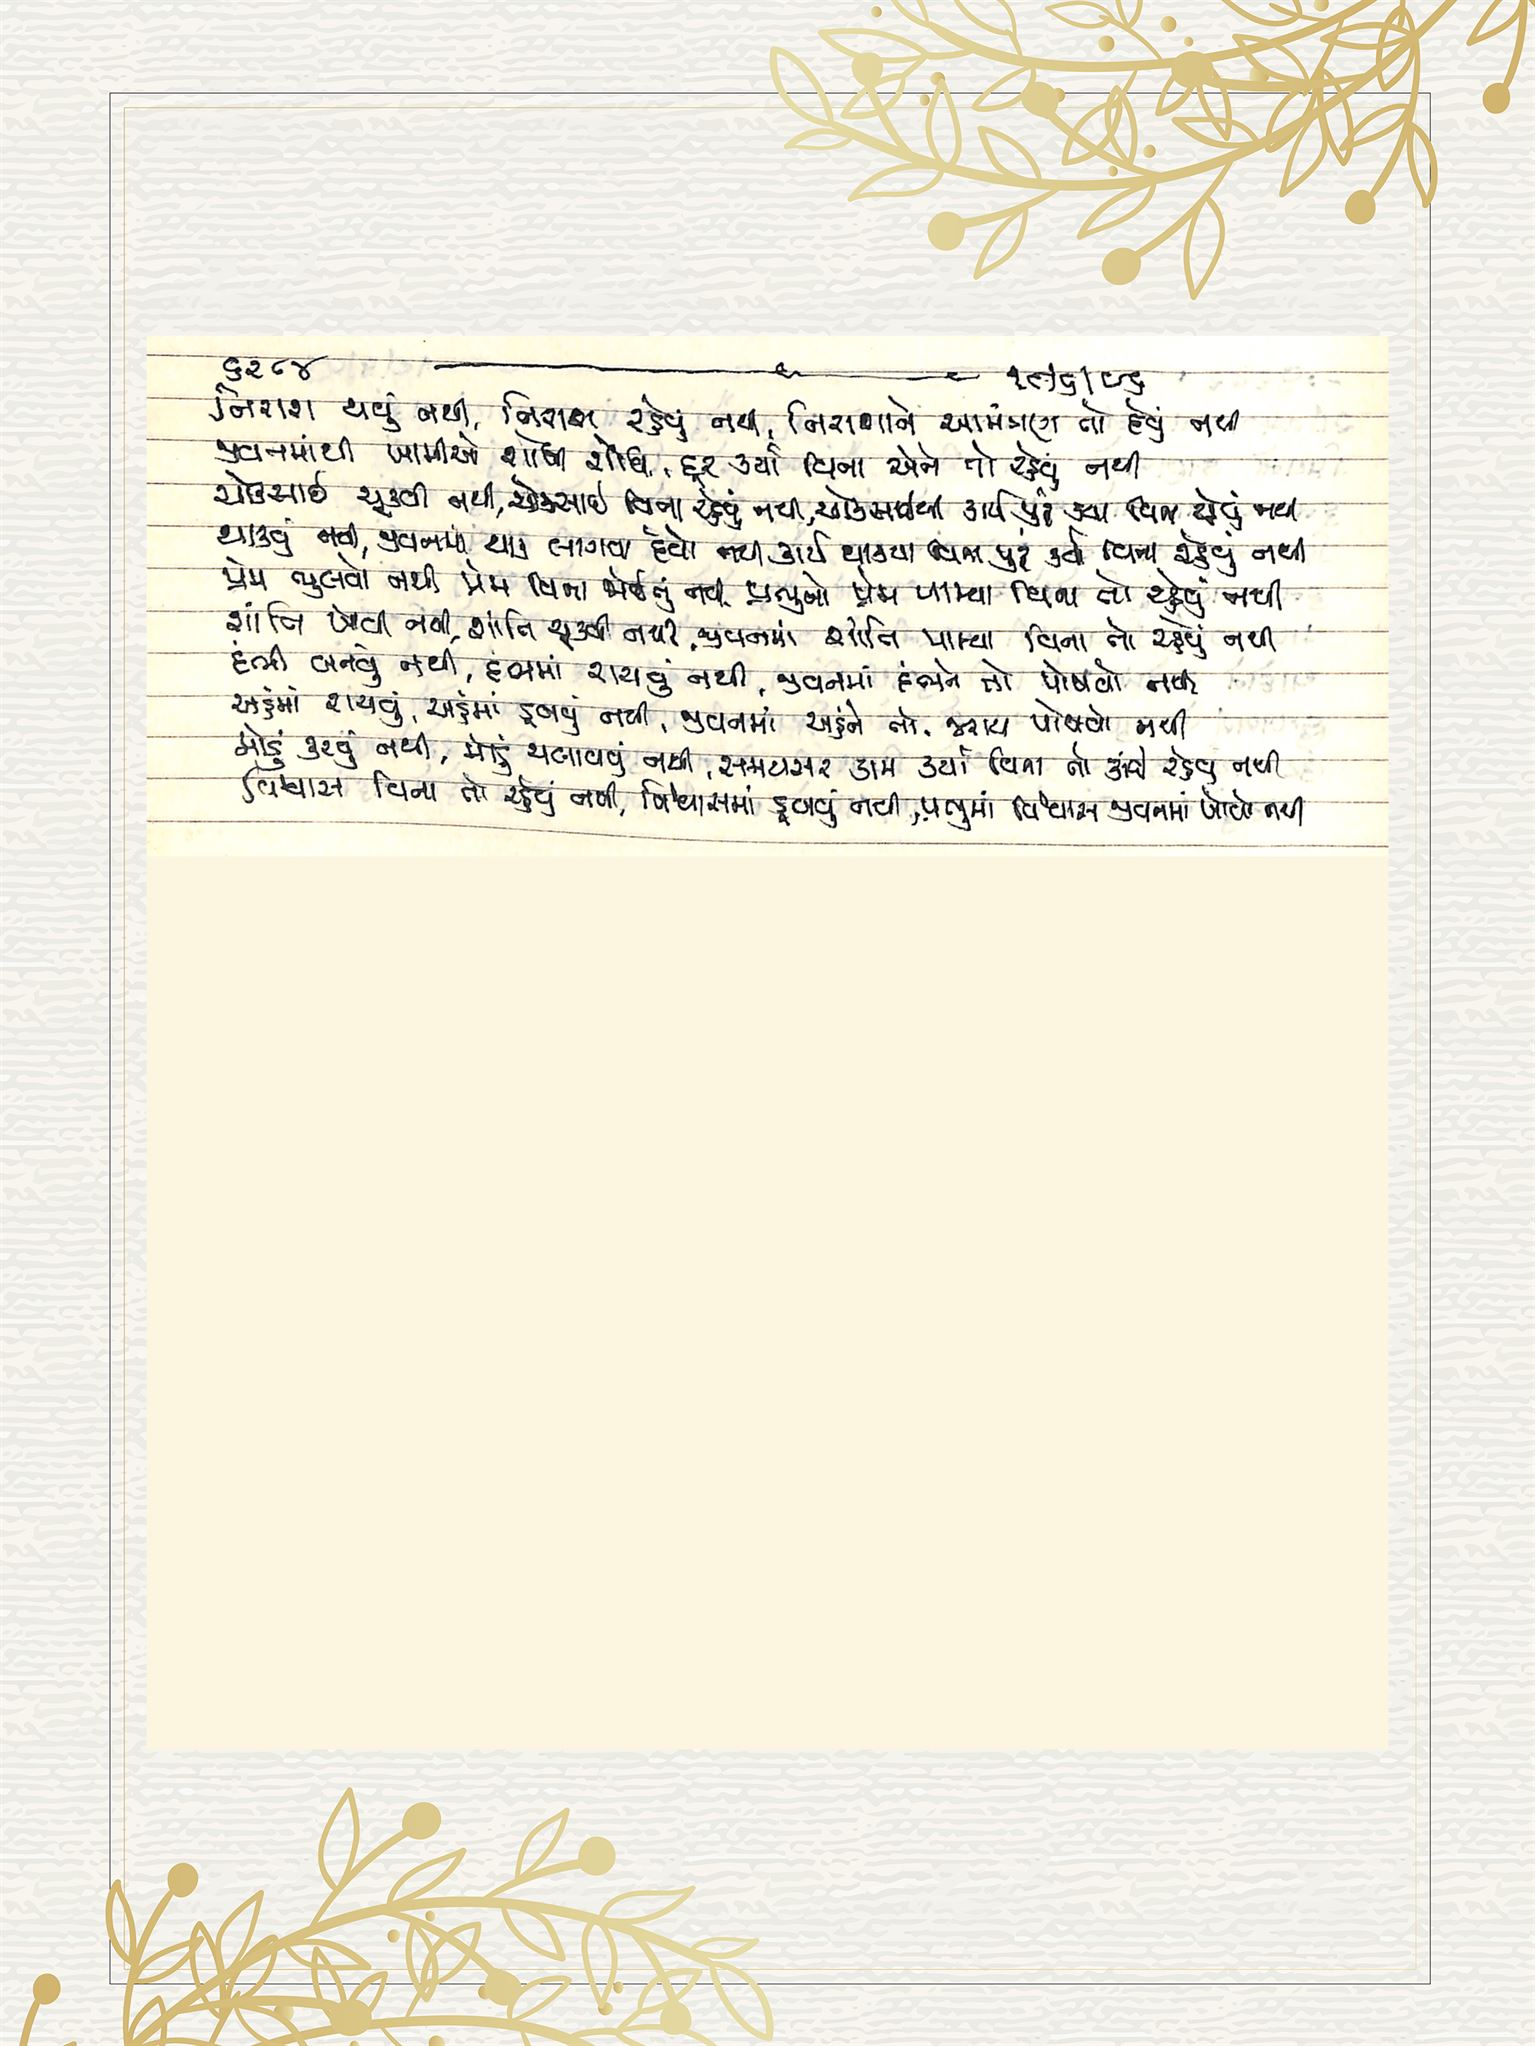 ૬૨૮૪ ૧૯/૬/૯૬
નિરાશ થવું નથી, નિરાશ રહેવું નથી, નિરાશાને આમંત્રણ તો દેવું નથી
જીવનમાંથી ખામીઓ શોધી શોધી, દૂર કર્યા વિના એને તો રહેવું નથી
ચોકસાઈ ચૂકવી નથી, ચોકસાઈ વિના રહેવું નથી, ચોકસાઈથી કાર્ય પુરું કર્યા વિના રહેવું નથી
થાકવું નથી, જીવનમાં થાક લાગવા દેવો નથી, કાર્ય થાક્યા વિના પુરું કર્યા વિના રહેવું નથી
પ્રેમ ભુલવો નથી પ્રેમ વિના નથી, પ્રભુનો પ્રેમ પામ્યા વિના તો રહેવું નથી
શાંતિ ખોવી નથી, શાંતિ ચૂકવી નથી, જીવનમાં શાંતિ પામ્યા વિના તો રહેવું નથી
દંભી બનવું નથી, દંભમાં રાચવું નથી, જીવનમાં દંભને તો પોષવો નથી
અહંમાં રાચવું, અહંમાં ડૂબવું નથી, જીવનમાં અહંને તો જરાય પોષવો નથી
મોડું કરવું નથી, મોડું ચલાવવું નથી, સમયસર કામ કર્યા વિના તો કાંઈ રહેવું નથી
વિશ્વાસ વિના તો રહેવું નથી, વિશ્વાસમાં ડૂબવું નથી, પ્રભુમાં વિશ્વાસ જીવનમાં ખોવો નથી